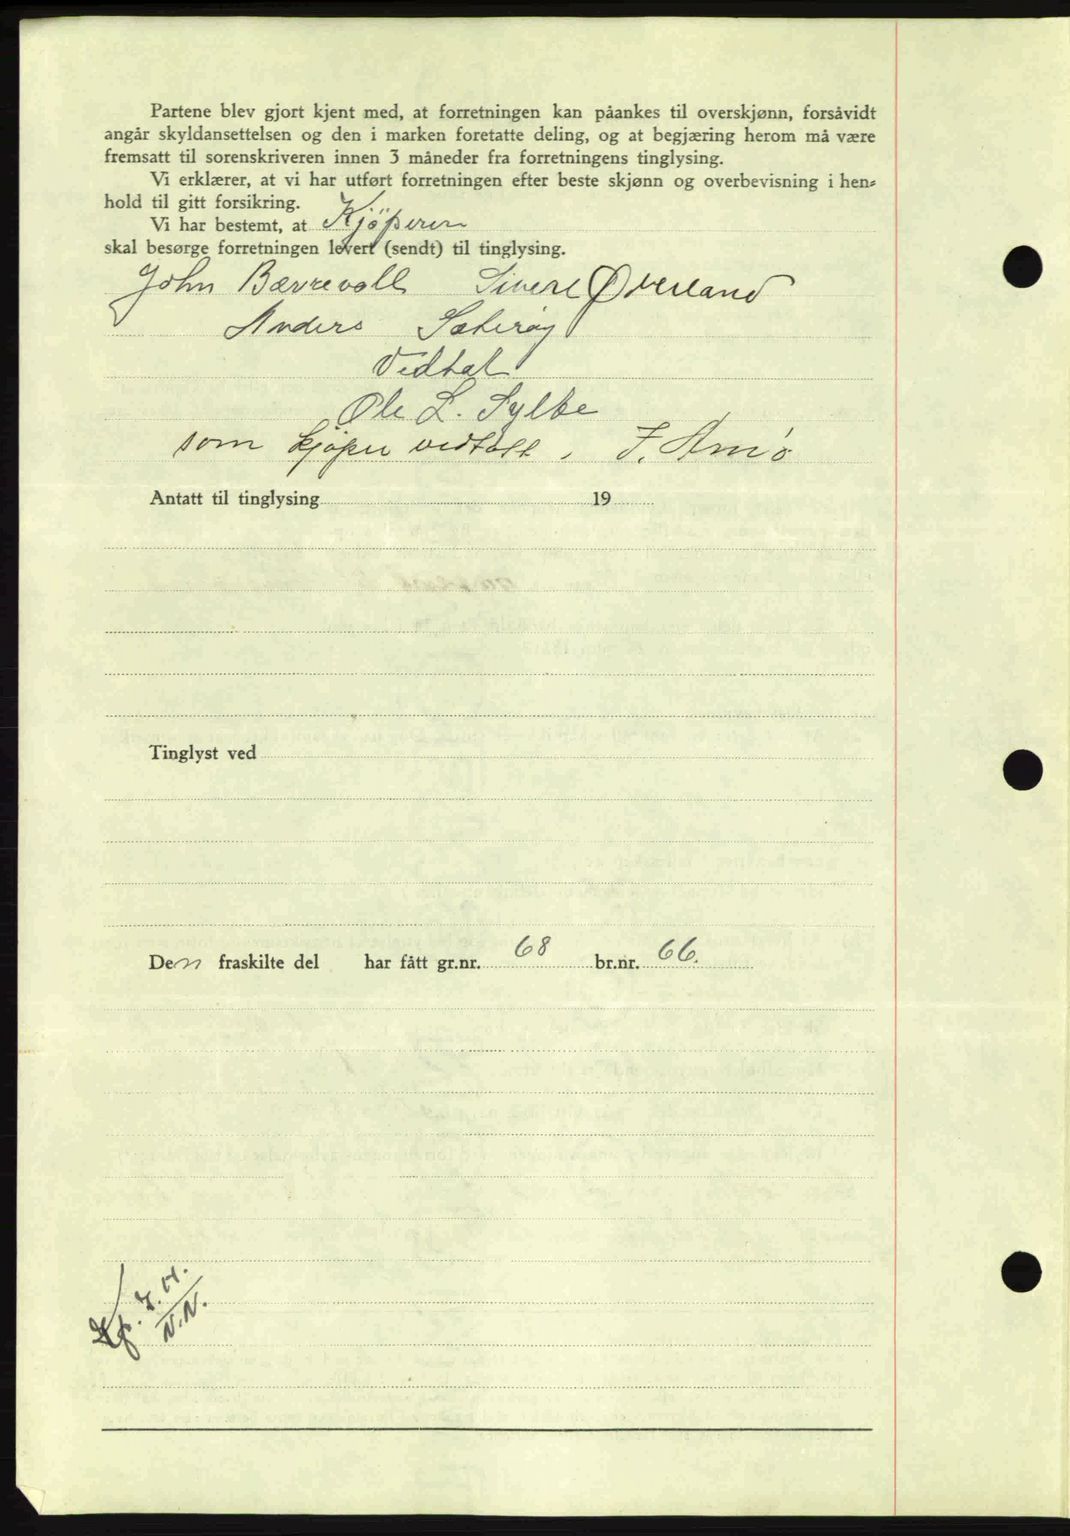 Partene blev gjort kjent med, at forretningen kan påankes til overskjønn, forsåvidt
angår skyldansettelsen og den i marken foretatte deling, og at begjæring herom må være
fremsatt til sorenskriveren innen 3 måneder fra forretningens tinglysing.
Vi erklærer, at vi har utført forretningen efter beste skjønn og overbevisning i hen-
hold til gitt forsikring.
Vi har bestemt, at Kjöperen
skal besørge forretningen levert (sendt) til tinglysing.
John Bævrevoll Sivert Øverland
Anders Sæterøy
Vedtat
Ole L. Sylte
som kjøper vedtatt,
Antatt til tinglysing 19
Tinglyst ved
Den fraskilte del har fått gr.nr. 68 br.nr. 66.
N.N.